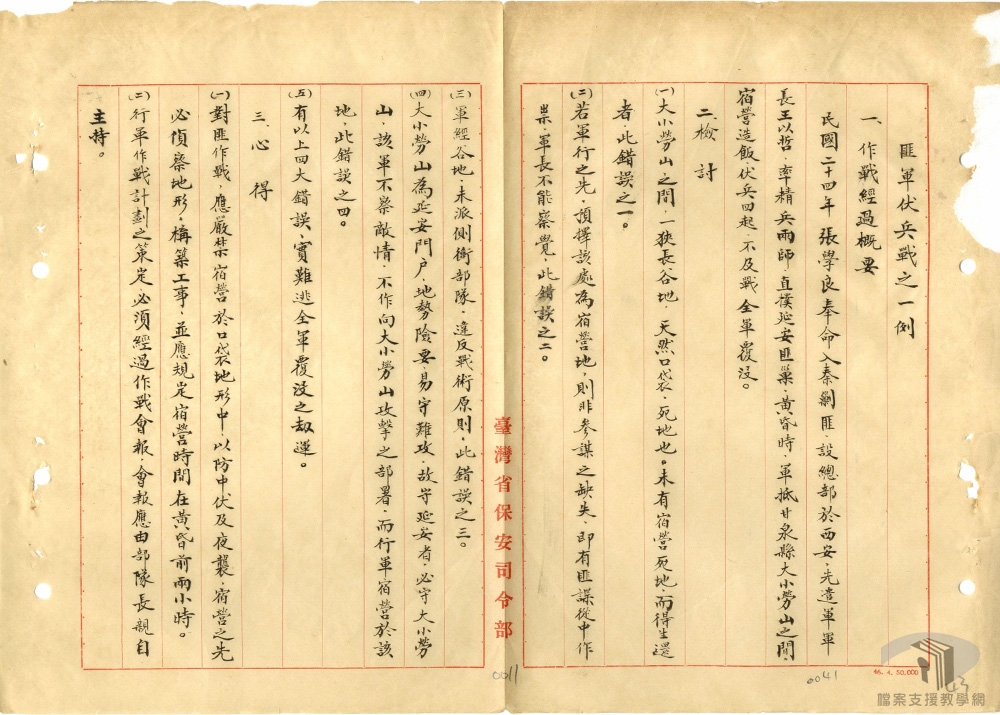 匪軍伏兵戰之一例
一、作戰經過概要
民國二十四年張學良奉命入秦剿匪，設總部於西安，先遣軍軍
長王以哲，率精兵兩師，直撲延安匪巢，黃昏時，軍抵甘泉縣大小勞山之間
宿營造飯，伏兵四起，不及戰全軍覆沒。
二、檢討
(一)大小勞山之間，一狹長谷地，天然口袋，死地也。未有宿營死地，而得生還
者，此錯誤之一。
(二)若軍行之先，預擇該處為宿營地，則非參謀之缺失，即有匪諜從中作
祟，軍長不能察覺，此錯誤之二。
臺灣省保安司令部
(三)軍經谷地，未派側衛部隊，違反戰術原則，此錯誤之三。
(四)大小勞山為延安門户，地勢險要，易守難攻，故守延安者，必守大小勞
山，該軍不察敵情，不作向大小勞山攻擊之部署，而行軍宿營於該
地，此錯誤之四。
(五)有以上四大錯誤，實難逃全軍覆沒之劫運。
三、心得
(一)對匪作戰，應嚴禁宿營於口袋地形中，以防中伏及夜襲，宿營之先
必偵察地形，構築工事，並應規定宿營時間在黃昏前兩小時。
(二)行軍作戰計劃之策定必須經過作戰會報，會報應由部隊長親自
主持。
0011
0041
46. 4. 50,000
檔案支援教學網